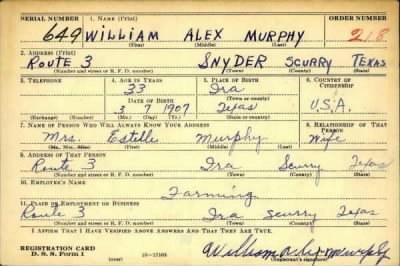 SERIAL NUMBER 1. Name (Print) ORDER NUMBER
649 WILLIAM ALEX MURPHY 218
(First) (Middle) (Last)
2. Address (Print)
ROUTE 3 SNYDER SCURRY TEXAS
(Number and street or R. F. D. number) (Town) (County) (State)
3. Telephone 4. Age in Years 5. Place of Birth 6. Country of Citizenship
33 Ira
Date of Birth (Town or county)
3 7 1907 Texas U.S.A.
(Exchange) (Number) (Mo.) (Day) (Yr.) (State or country)
7. Name of Person Who Will Always Know Your Address 8. Relationship of That Person
Mrs. Estelle Murphy Wife
(Mr., Mrs., Miss) (First) (Middle) (Last)
9. Address of That Person
Route 3 Ira Scurry Texas
(Number and street or R. F. D. number) (Town) (County) (State)
10. Employer's Name
Farming
11. Place of Employment or Business
Route 3 Ira Scurry Texas
(Number and street or R. F. D. number) (Town) (County) (State)
I Affirm That I Have Verified Above Answers and That They Are True.
REGISTRATION CARD
D. S. S. Form 1 (over) 16-17105 William Alex Murphy
(Registrant's signature)